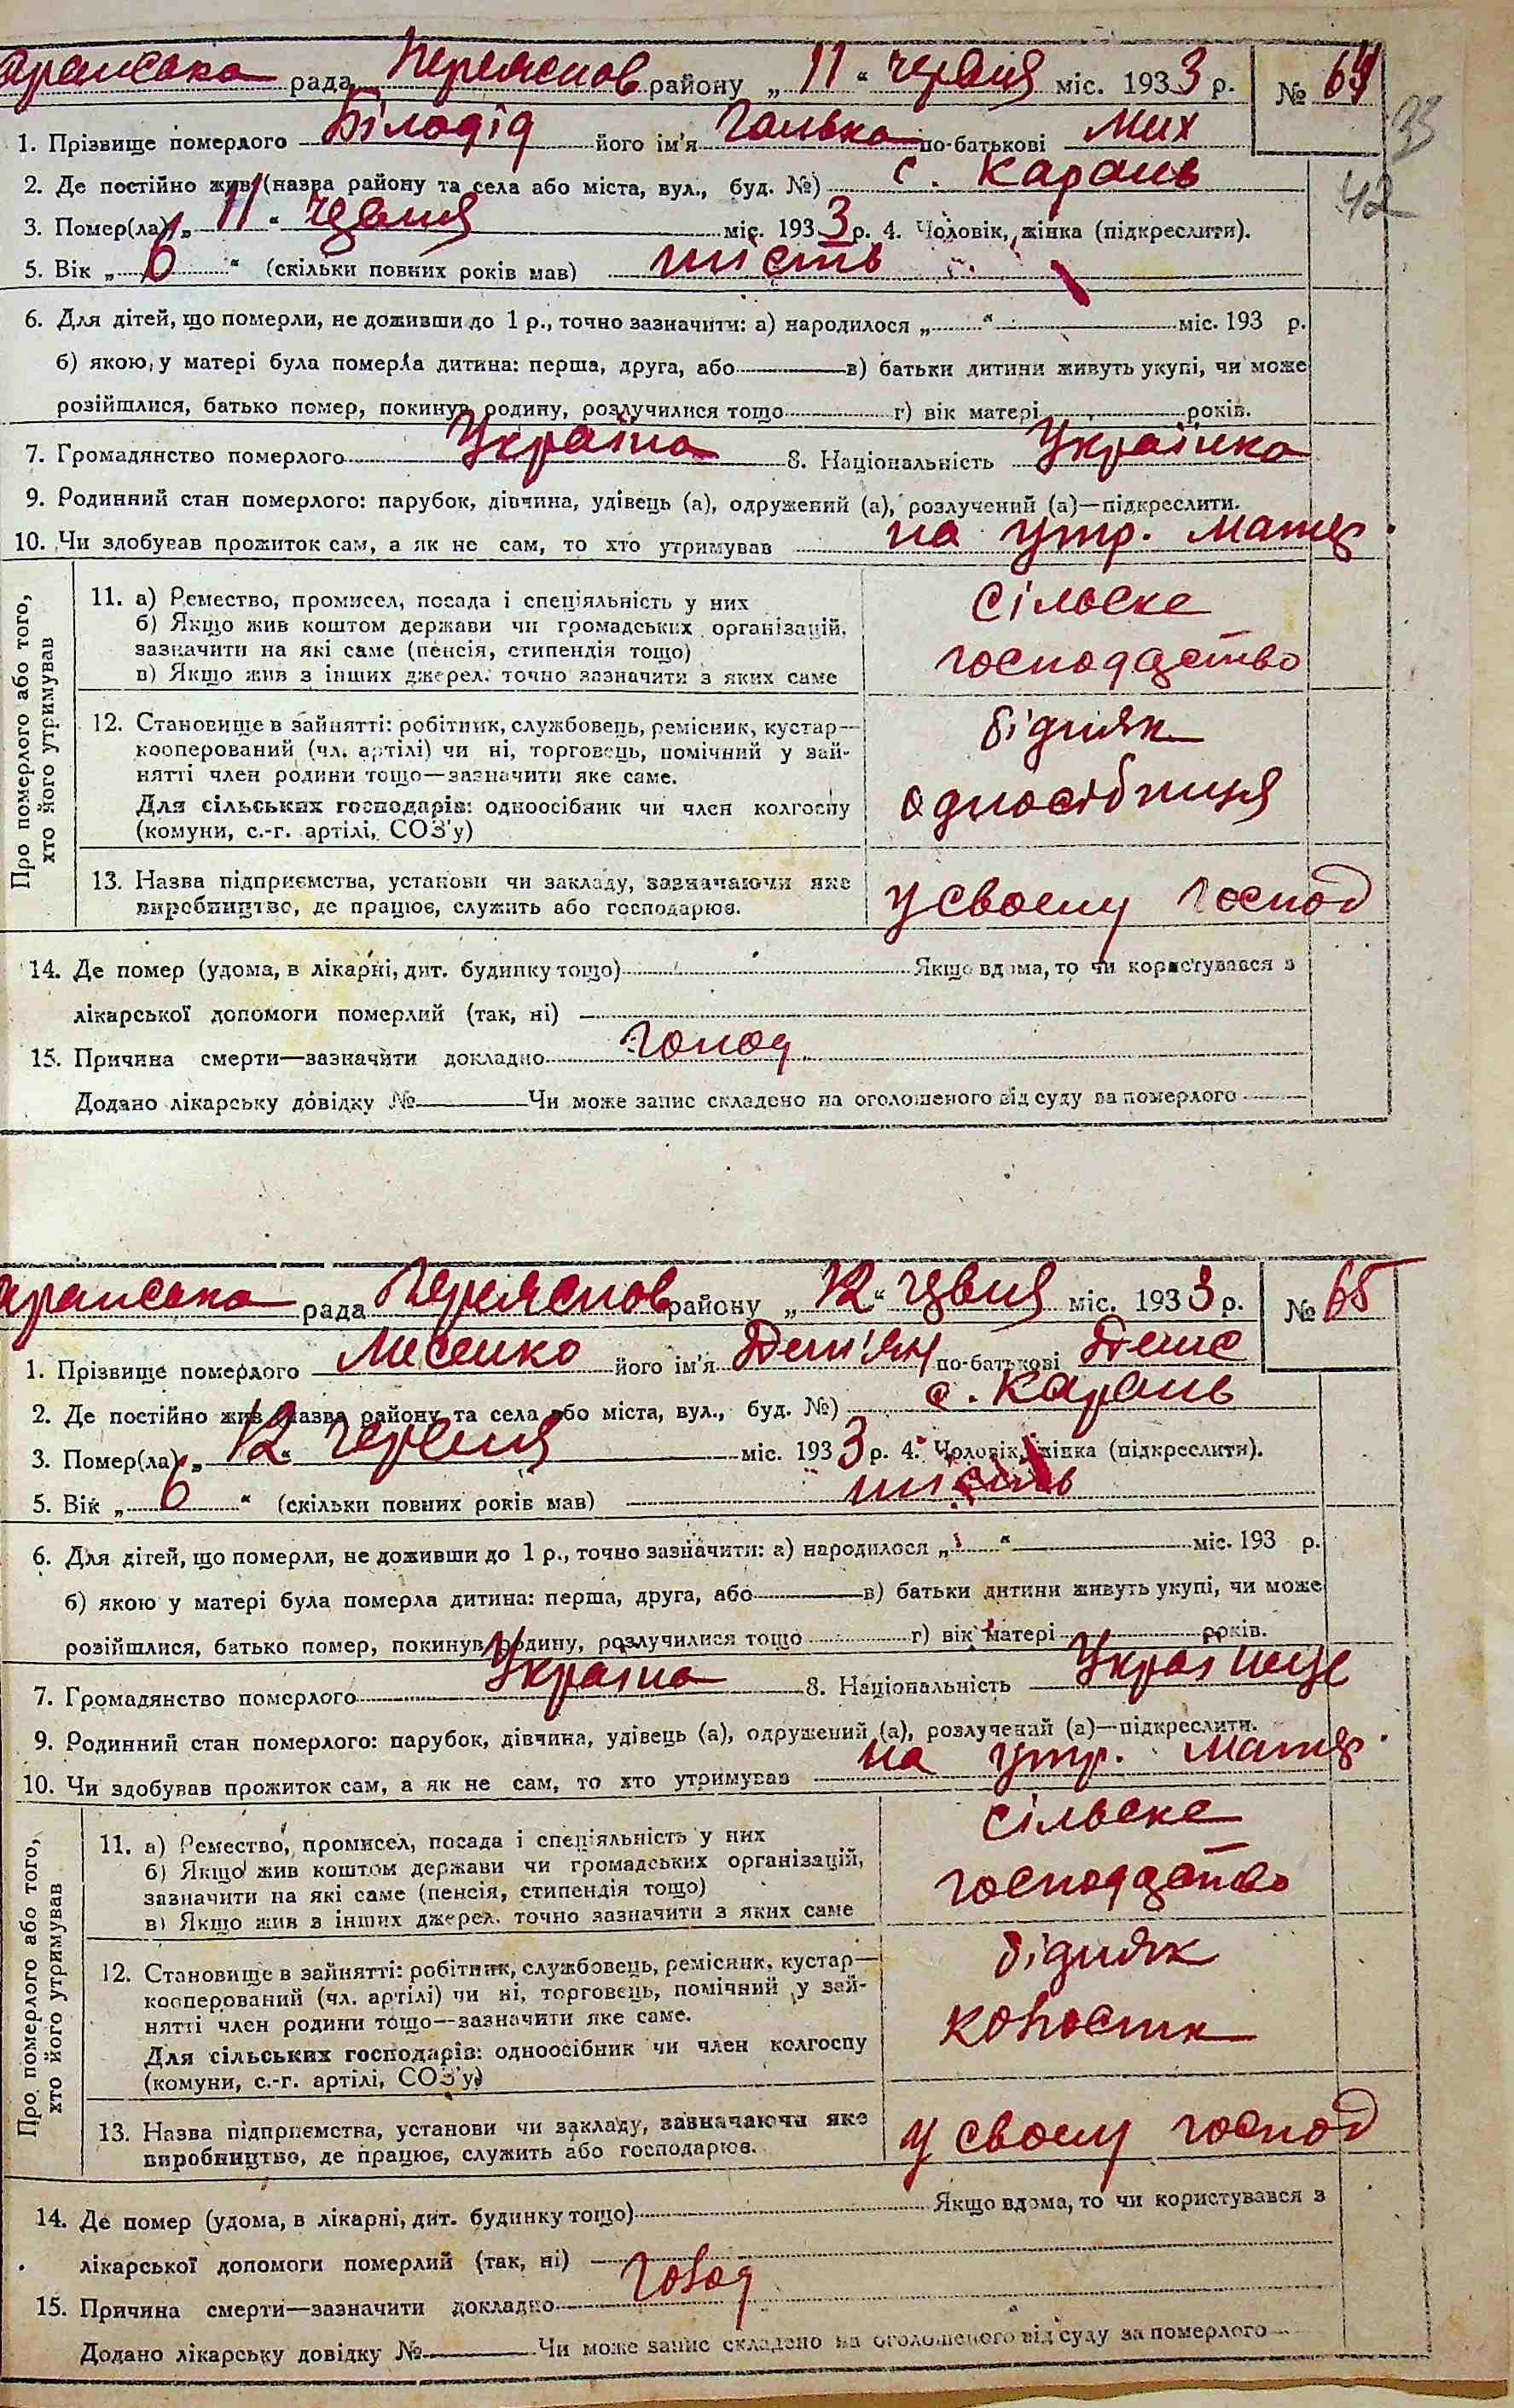 аранська рада Переяслов району „ 11 “ червня міс. 1933 р. № 64
33
1. Прізвище померлого Білодід його ім'я Галька по-батькові Мих
2. Де постійно жив (назва району та села або міста, вул., буд. №) с. Карань
42
3. Помер(ла) „ 11 “ червня міс. 1933 р. 4. Чоловік, жінка (підкреслити).
5. Вік „ 6 “ (скільки повних років мав) шість
6. Для дітей, що померли, не доживши до 1 р., точно зазначити: а) народилося „ “ міс. 193 р.
б) якою у матері була померла дитина: перша, друга, або в) батьки дитини живуть укупі, чи може
розійшлися, батько помер, покинув родину, розлучилися тощо г) вік матері років.
7. Громадянство померлого Україна 8. Національність Українка
9. Родинний стан померлого: парубок, дівчина, удівець (а), одружений (а), розлучений (а)—підкреслити.
10. Чи здобував прожиток сам, а як не сам, то хто утримував на утр. матер
Про померлого або того, хто його утримував
11. а) Ремество, промисел, посада і спеціяльність у них
б) Якщо жив коштом держави чи громадських організацій,
зазначити на які саме (пенсія, стипендія тощо)
в) Якщо жив з інших джерел. точно зазначити з яких саме
сільске
господаство
12. Становище в зайнятті: робітник, службовець, ремісник, кустар—
кооперований (чл. артілі) чи ні, торговець, помічний у зай-
нятті член родини тощо—зазначити яке саме.
Для сільських господарів: одноосібник чи член колгоспу
(комуни, с.-г. артілі, СОЗ'у)
бідняк
односібниця
13. Назва підприємства, установи чи закладу, зазначаючи яке
виробництво, де працює, служить або господарює.
у своєму господ
14. Де помер (удома, в лікарні, дит. будинку тощо) Якщо вдома, то чи користувався з
лікарської допомоги померлий (так, ні)
15. Причина смерти—зазначити докладно голод
Додано лікарську довідку № Чи може запис складено на оголошеного від суду за померлого
аранська рада Переяслов району „ 12 “ червня міс. 1933 р. № 65
1. Прізвище померлого Лисенко його ім'я Дем'ян по-батькові
2. Де постійно жив (назва району та села або міста, вул., буд. №) с. Карань
3. Помер(ла) „ 12 “ червня міс. 1933 р. 4. Чоловік, жінка (підкреслити).
5. Вік „ 6 “ (скільки повних років мав) шість
6. Для дітей, що померли, не доживши до 1 р., точно зазначити: а) народилося „ “ міс. 193 р.
б) якою у матері була померла дитина: перша, друга, або в) батьки дитини живуть укупі, чи може
розійшлися, батько помер, покинув родину, розлучилися тощо г) вік матері років.
7. Громадянство померлого Україна 8. Національність Українце
9. Родинний стан померлого: парубок, дівчина, удівець (а), одружений (а), розлучений (а)—підкреслити.
10. Чи здобував прожиток сам, а як не сам, то хто утримував на утр. матер
Про померлого або того, хто його утримував
11. а) Ремество, промисел, посада і спеціяльність у них
б) Якщо жив коштом держави чи громадських організацій,
зазначити на які саме (пенсія, стипендія тощо)
в) Якщо жив з інших джерел. точно зазначити з яких саме
сільске
господаство
12. Становище в зайнятті: робітник, службовець, ремісник, кустар—
кооперований (чл. артілі) чи ні, торговець, помічний у зай-
нятті член родини тощо—зазначити яке саме.
Для сільських господарів: одноосібник чи член колгоспу
(комуни, с.-г. артілі, СОЗ'у)
бідняк
13. Назва підприємства, установи чи закладу, зазначаючи яке
виробництво, де працює, служить або господарює.
у своєму господ
14. Де помер (удома, в лікарні, дит. будинку тощо) Якщо вдома, то чи користувався з
лікарської допомоги померлий (так, ні)
15. Причина смерти—зазначити докладно голод
Додано лікарську довідку № Чи може запис складено на оголошеного від суду за померлого